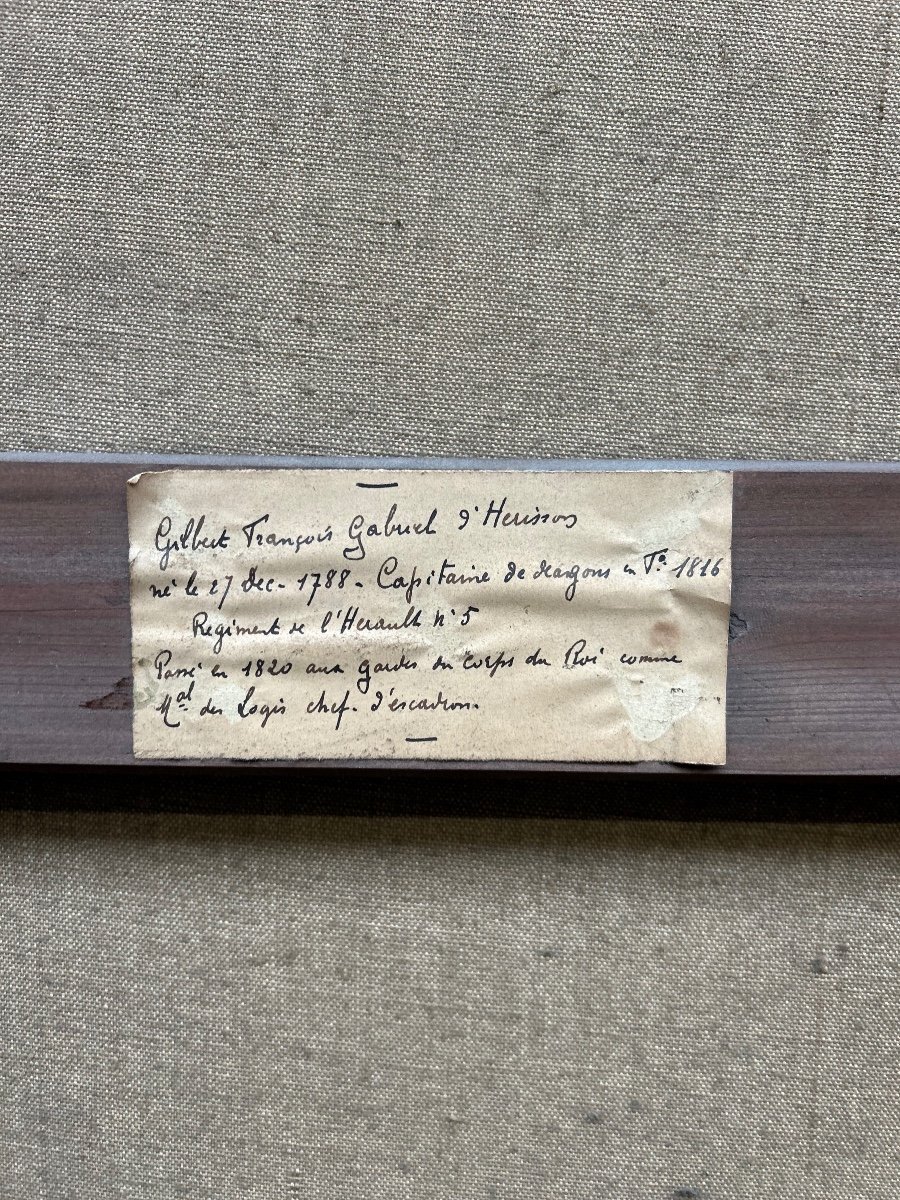 Gilbert François Gabriel d'Herisson
né le 27 Dec- 1788- Capitaine de dragons en 1816
Regiment de l'Herault n° 5
Passé en 1820 aux gardes du corps du Roi comme
Mal des Logis chef- d'escadron-